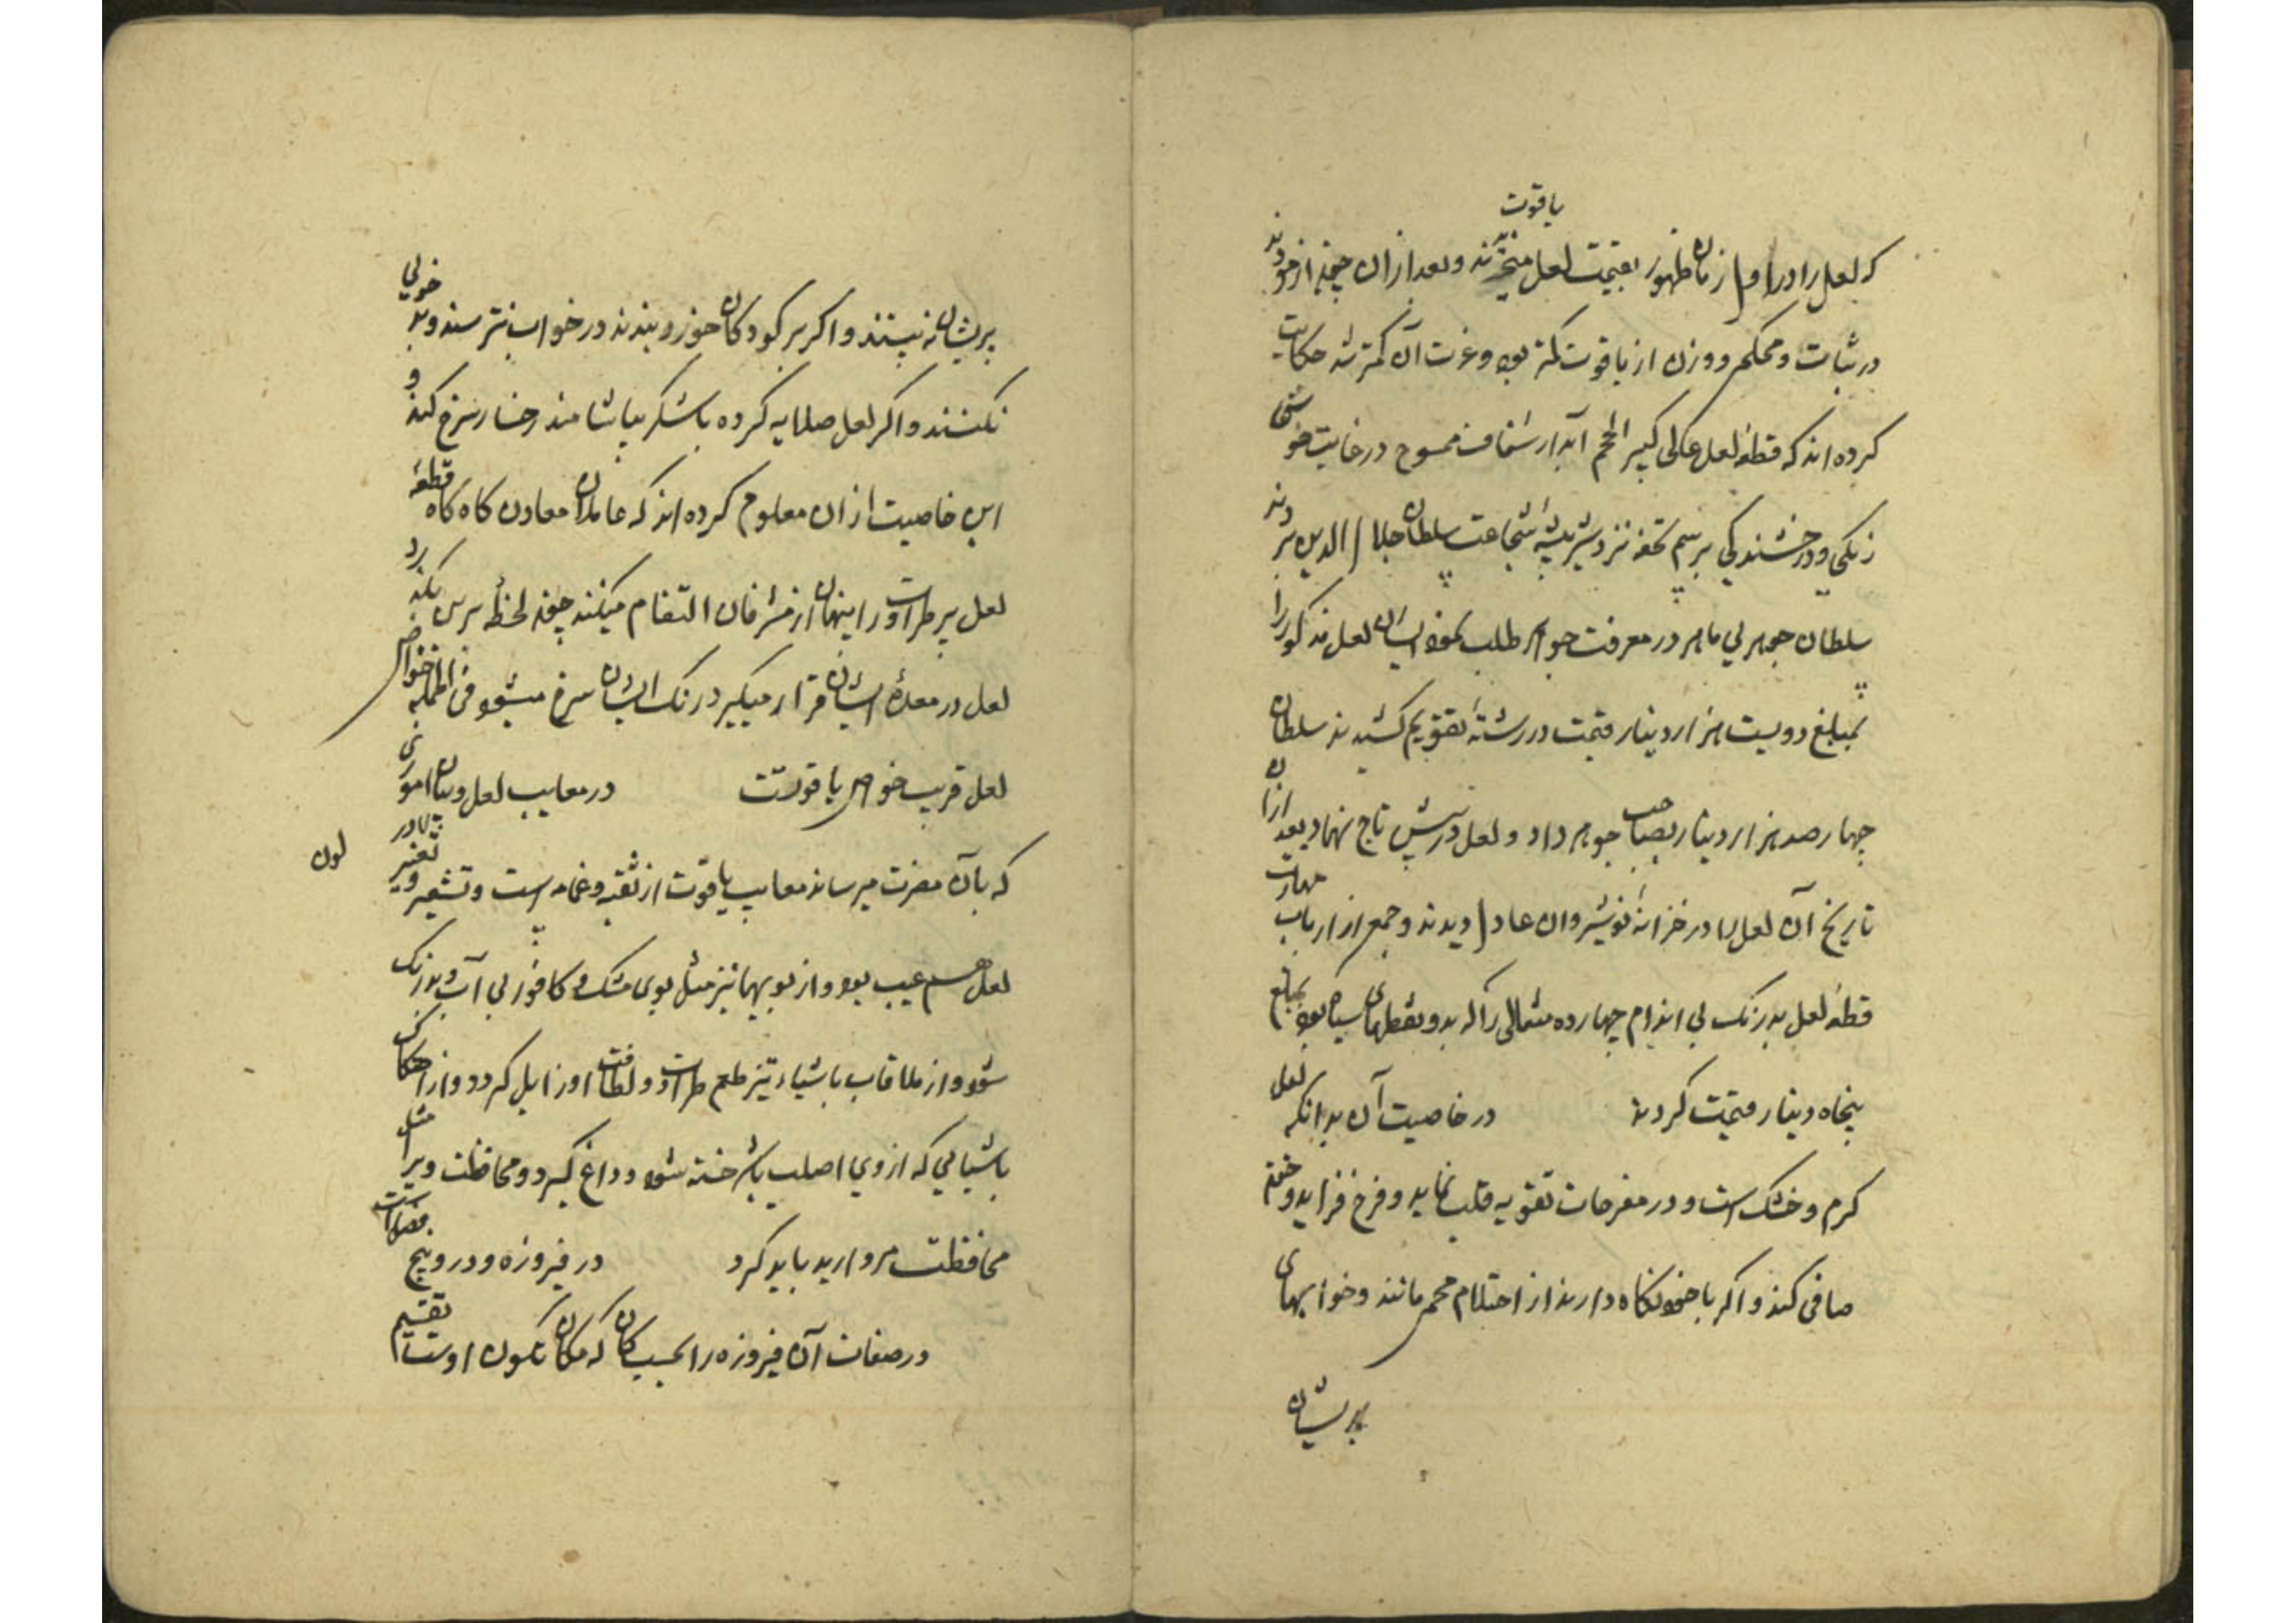 یاقوت
که لعل را در اول زمان ظهور بقیمت لعل میخریدند و بعد ازان چون از خود دیدند
در ثبات و محکم و وزن از یاقوت کمتر بود و عزت آن کمتر شد حکایت
کرده اند که قطعه لعل کبیر الحجم آبدار شفاف ممسوح در غایت خوش
رنکی و درخشندکی برسم تحفه نزد شیر بیشه شجاعت سلطان جلال الدین بردند
سلطان جوهریی ماهر در معرفت جواهر طلب نمود ایشان لعل مذکور را
بمبلغ دویست هزار دینار قیمت در رشته تقویم کشیدند سلطان
چهار صد هزار دینار بصاحب جوهر داد و لعل در پیش تاج نهاد بعد ازان
تاریخ آن لعل را در خزانه نوشیروان عادل دیدند و جمع از ارباب مهارت
قطعه لعل بدرنک بی اندام چهارده مثقالی را که بدو نقطهای سیاه بود بمبلغ
پنجاه دینار قیمت کردند در خاصیت آن بدانکه لعل
کرم و خشک است و در مفرحات تقویه قلب نماید و فرح فزاید و خون
صافی کند و اکر با خود نکاه دارند از احتلام محمی مانند و خوابهای
پریشان
پریشان نبینند و اکر بر کودکان خورد بندند در خواب نترسند و بدخویی
نکنند و اکر لعل صلایه کرده با شکر بیاشامند رخسار سرخ کند و
این خاصیت ازان معلوم کرده اند که عاملان معادن کاه کاه قطعه
لعل پر طراوت را پنهان از مشرفان التقام میکنند چون لحظه برین بکذرد
لعل در معده ایشان قرار میکیرد رنک ایشان سرخ میشود فی الجمله خواص
لعل قریب خواص یاقوتست در معایب لعل و بیان اموری
که بآن مضرت میرساند معایب یاقوت از ثقبه و غمامه است و تشعیر و تغییر
لون
لعل هم عیب بود و از بویها نیز مثل بوی مشک و کافور بی آب و بد رنک
شود و از ملاقات باشیاء تیز طعم طراوت و لطافت او زایل کردد و از احتکاک
باشیایی که از وی اصلب باشد خسته شود و داغ کیرد و محافظت ویرا مثل
محافظت مروارید باید کرد در فیروزه و در وی پنج فصلست
در صفات آن فیروزه را بحسب کان که مکان تکون اوست تقسیم